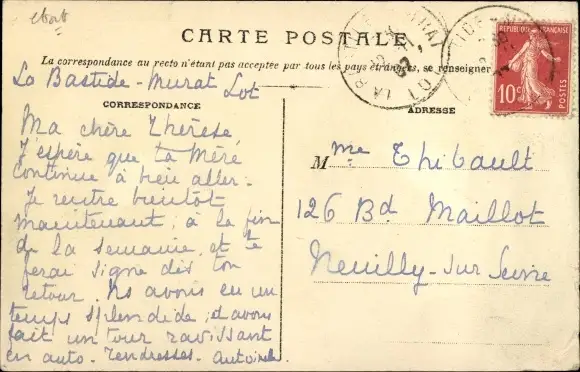 CARTE POSTALE
La correspondance au recto n'étant pas acceptée par tous les pays étrangers, se renseigner
La Bastide-Murat Lot
CORRESPONDANCE
Ma chère Thérèse
J'espère que ta Mère
continue à bien aller.
Je rentre bientôt
maintenant, à la fin
de la semaine et te
ferai signe dès ton
retour. Ns avons eu un
temps splendide, et avons
fait un tour ravissant
en auto. Tendresses.
ADRESSE
Mme Thibault
126 Bd Maillot
Neuilly-sur Seine
RÉPUBLIQUE FRANÇAISE
10c
POSTES
LOT